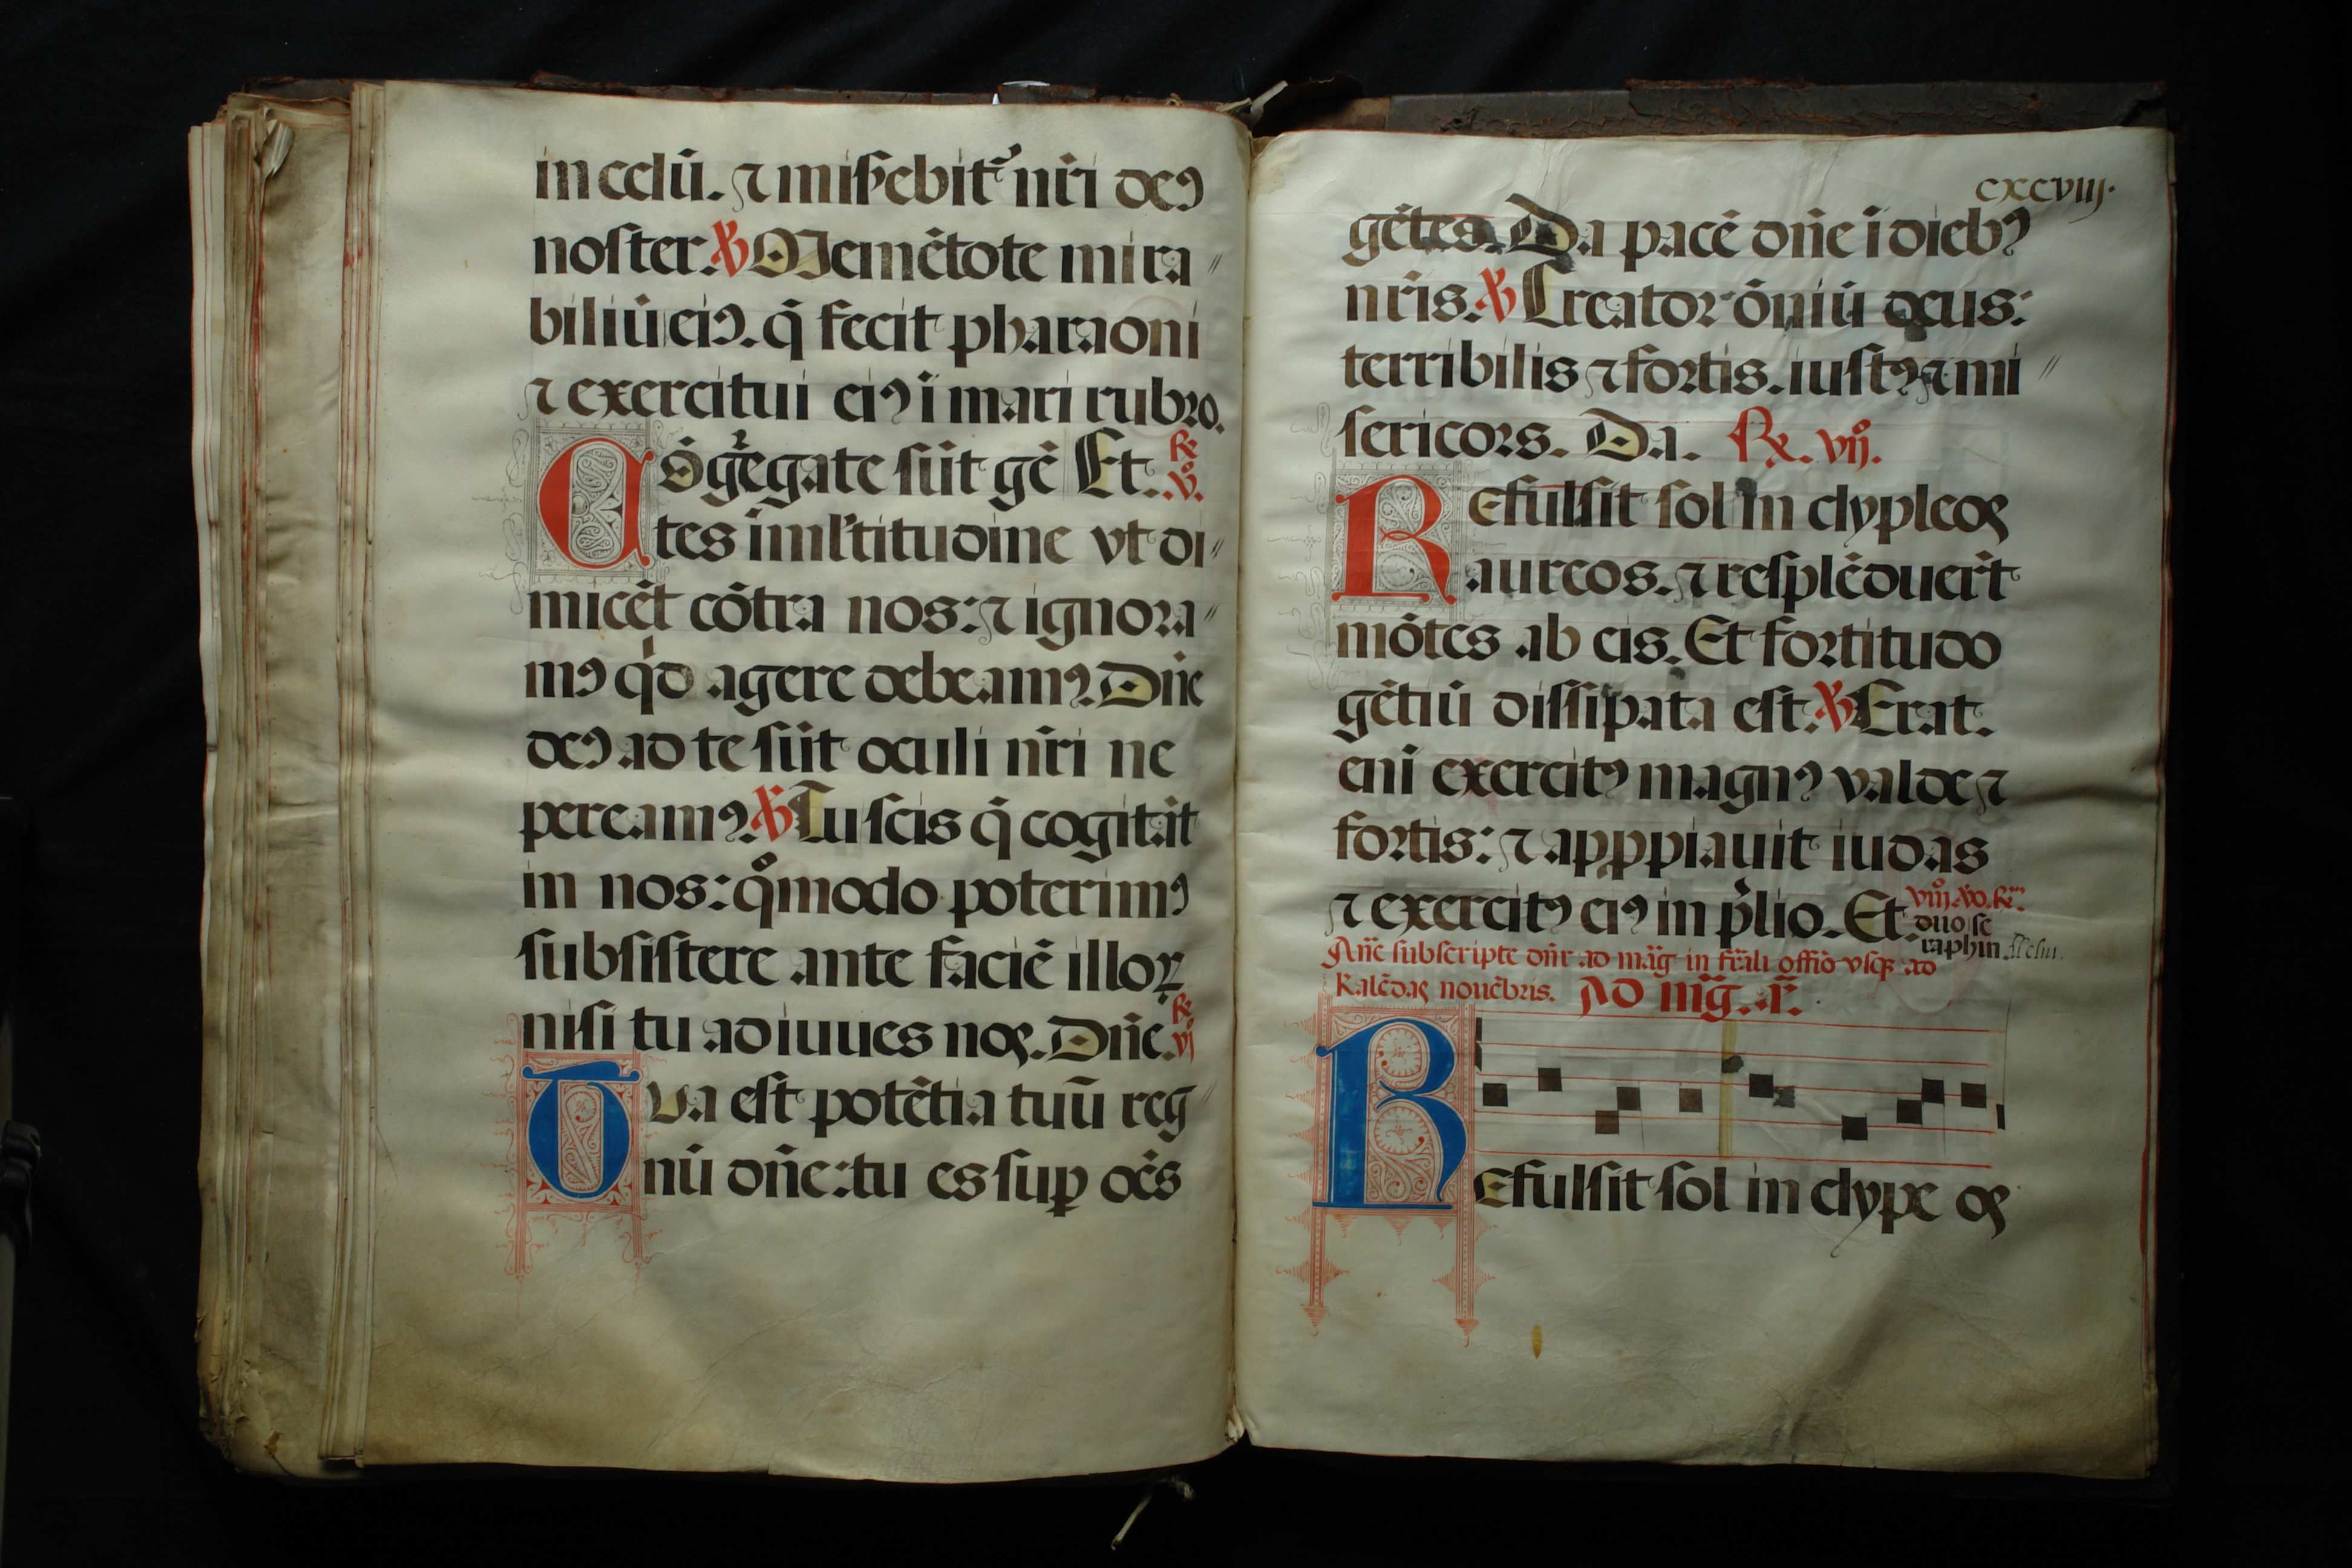 in celū. ⁊ miſ̉ebit᷑ nr̄i deꝰ
noſter. ℣ Memētote mira〃
biliū eiꝰ. q̄ fecit pharaoni
⁊ exercitui eiꝰ ī mari rubro.
Cōgͣegate ſūt gē Et. R̄. v̊.
tes ī ml̓titudine vt di〃
micēt cōtra nos: ⁊ ignora〃
mꝰ qͥd agere debeamꝰ. Dn̄e
deꝰ ad te ſūt oculi nr̄i ne
pereamꝰ. ℣ Tu ſcis q̄ cogitāt
in nos: qͦmodo poterimꝰ
subſiſtere ante faciē illoꝝ
niſi tu adiuues nos. Dn̄e. R̄. vj
TUa eſt potētia tuū reg〃
nū dn̄e: tu es ſuꝑ oēs
cxcviij.
gētes. Da pacē dn̄e ī diebꝰ
nr̄is. ℣ Creator ōniū deus:
terribilis ⁊ fortis. iuſtꝰ ⁊ mi〃
ſericors. Da. ℞. vij̊.
REfulſit ſol in clypleos
aureos. ⁊ reſplēduer̄t
mōtes ab eis. Et fortitudo
gētiū diſſipata eſt. ℣ Erat.
enī exercitꝰ magnꝰ valde ⁊
fortis: ⁊ appꝓpiauit iudas
⁊ exercitꝰ eiꝰ in p̄lio. Et. viij̊. vo. R̄.
duo ſe
raphin.
An̄e subſcripte dn̄r ad māg in fr̄ali offīo vſqꝫ ad
Kalēdas nouēbris. AD m̄g. a̅.
REfulſit ſol in clype os